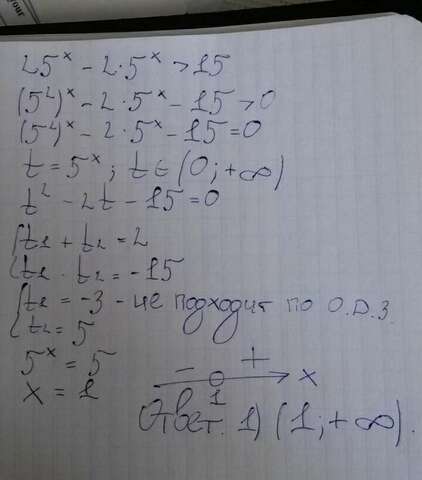 25ˣ - 2·5ˣ > 15
(5²)ˣ - 2·5ˣ - 15 > 0
(5²)ˣ - 2·5ˣ - 15 = 0
t = 5ˣ; t ∈ (0; +∞)
t² - 2t - 15 = 0
{t₁ + t₂ = 2
{t₁ · t₂ = -15
{t₁ = -3 - не подходит по О.Д.З.
{t₂ = 5
5ˣ = 5
x = 1
- + x
1
Ответ. 1) (1; +∞).